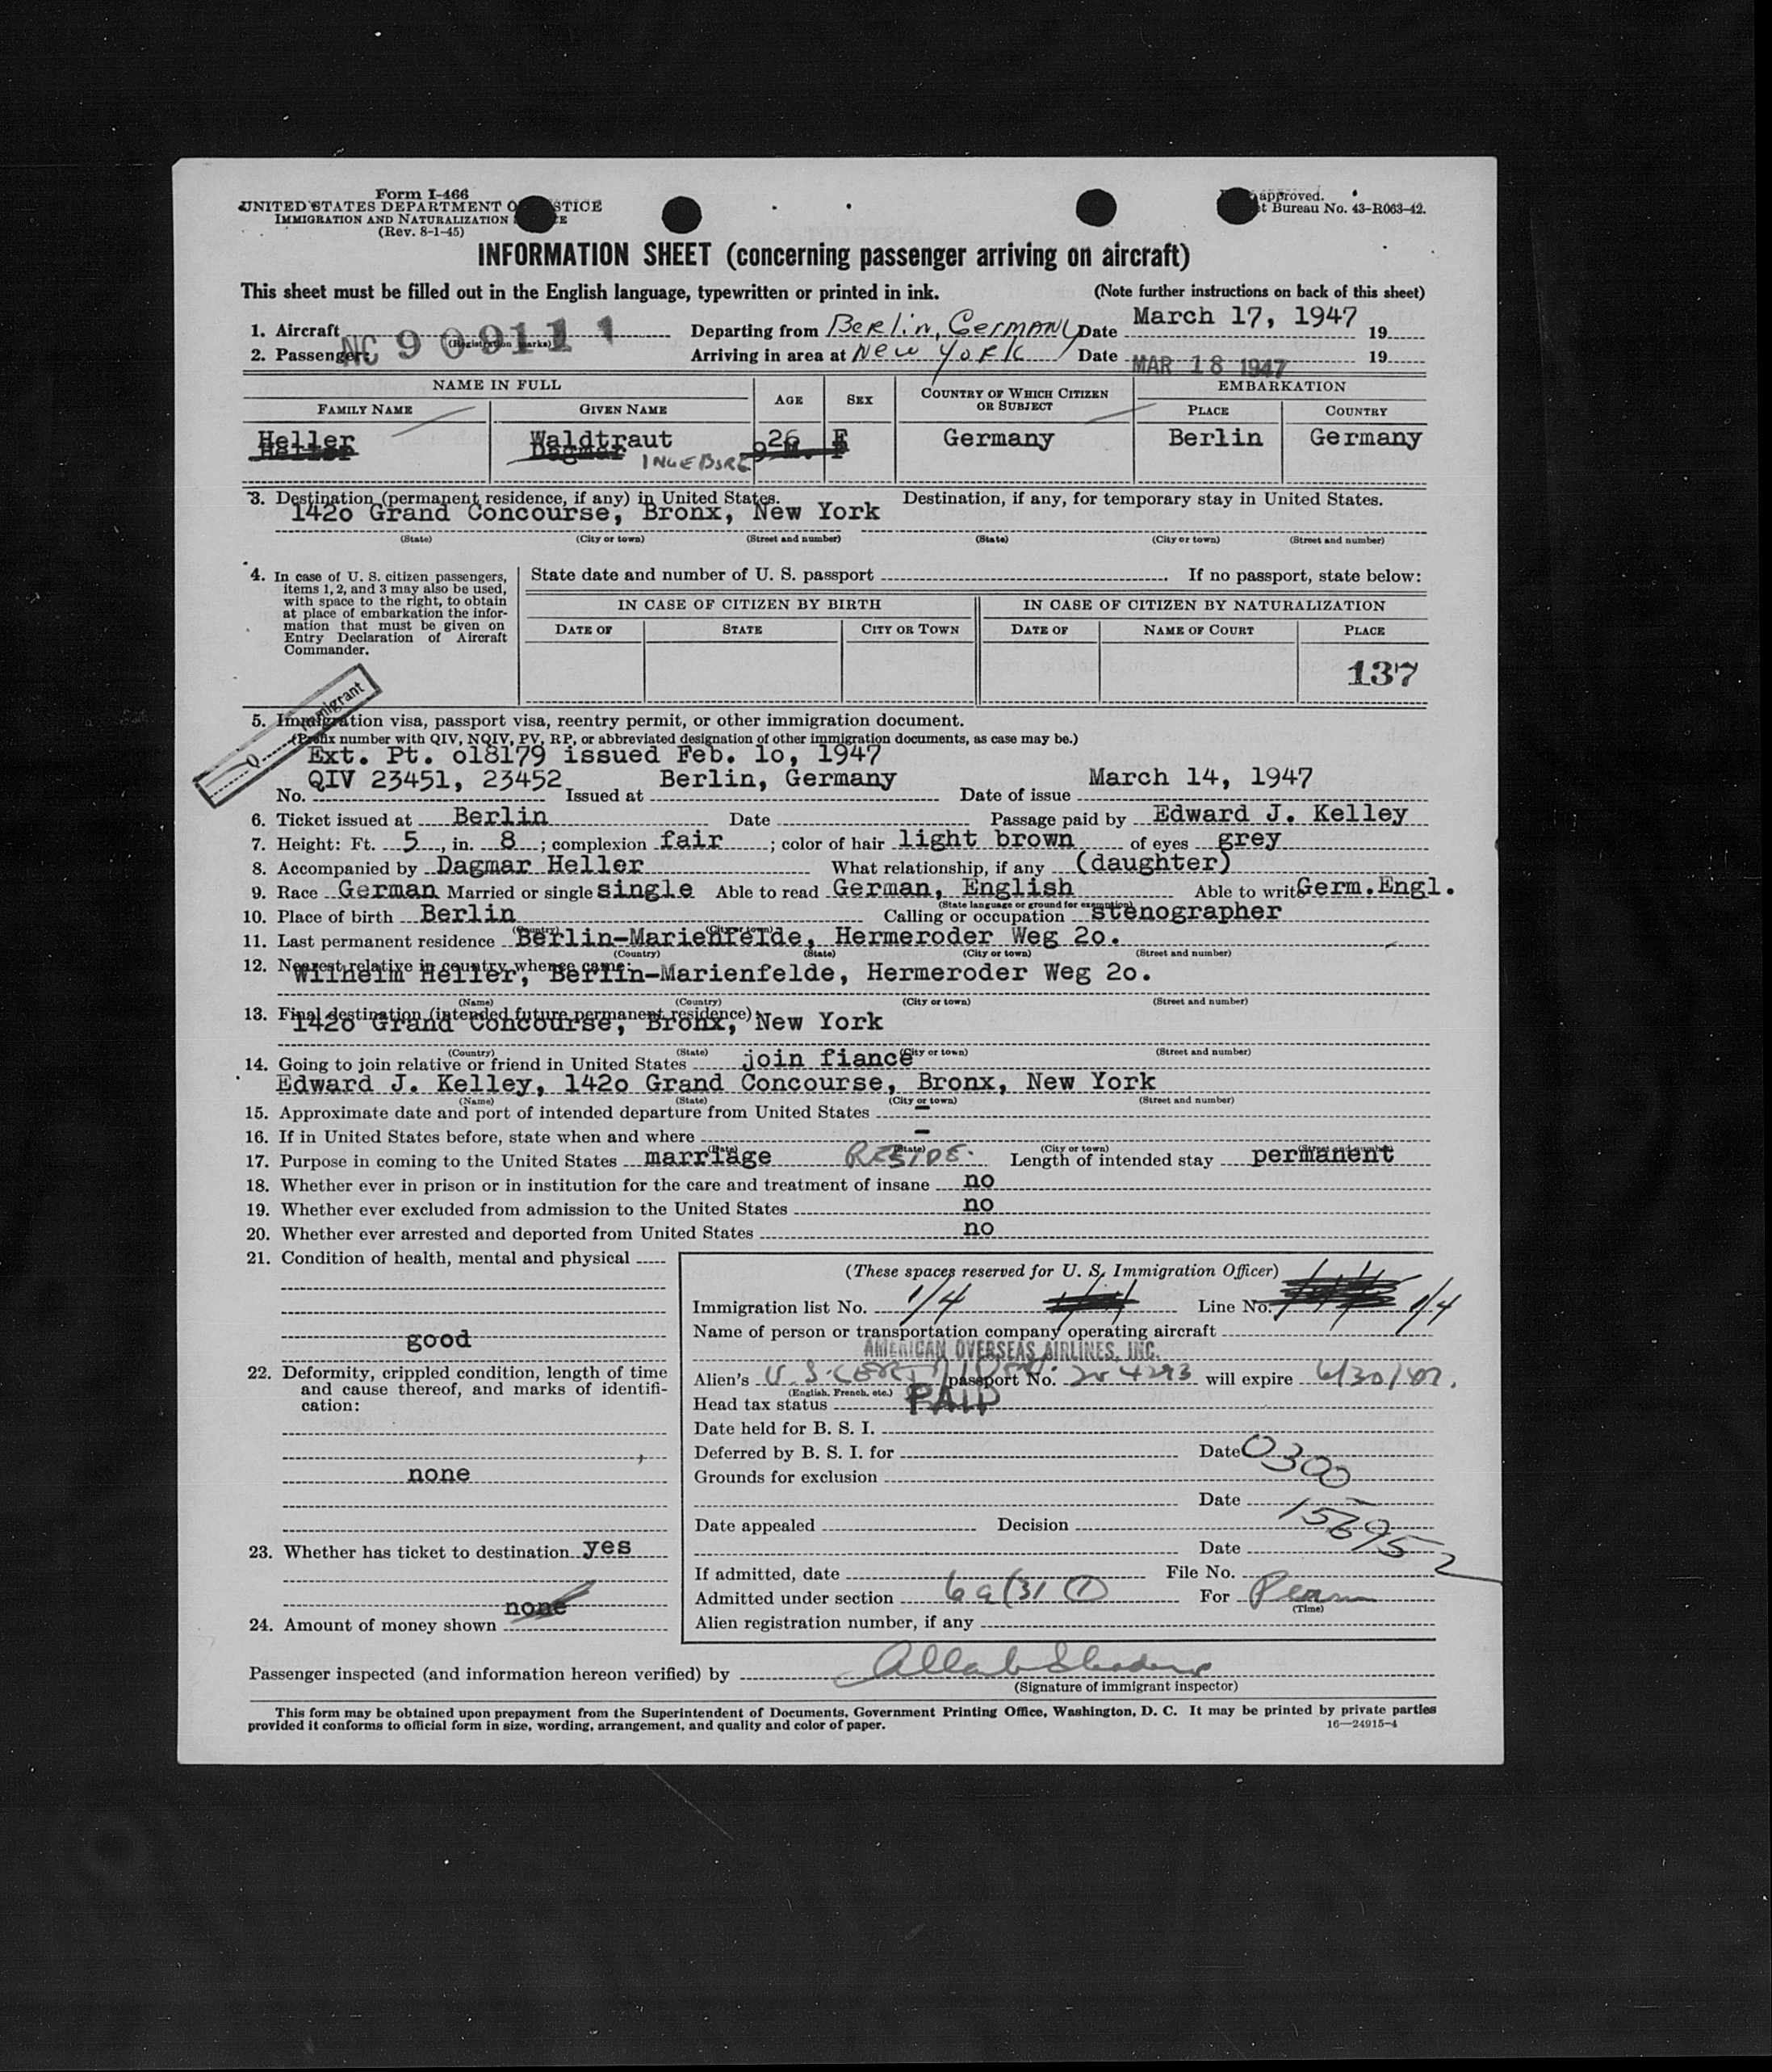 Form I-466
UNITED STATES DEPARTMENT O STICE
IMMIGRATION AND NATURALIZATION S E
(Rev. 8-1-45)
approved.
t Bureau No. 43-R063-42.
INFORMATION SHEET (concerning passenger arriving on aircraft)
This sheet must be filled out in the English language, typewritten or printed in ink. (Note further instructions on back of this sheet)
1. Aircraft NC 90911 1 (Registration marks) Departing from Berlin, Germany Date March 17, 1947 19
2. Passenger: Arriving in area at New York Date MAR 18 1947 19
NAME IN FULL AGE SEX COUNTRY OF WHICH CITIZEN OR SUBJECT EMBARKATION
FAMILY NAME GIVEN NAME PLACE COUNTRY
Heller Waldtraut 26 F Germany Berlin Germany
Heller Dagmar INGEBORG 9 M. F
3. Destination (permanent residence, if any) in United States. Destination, if any, for temporary stay in United States.
142o Grand Concourse, Bronx, New York
(State) (City or town) (Street and number) (State) (City or town) (Street and number)
4. In case of U. S. citizen passengers, items 1, 2, and 3 may also be used, with space to the right, to obtain at place of embarkation the information that must be given on Entry Declaration of Aircraft Commander.
State date and number of U. S. passport . If no passport, state below:
IN CASE OF CITIZEN BY BIRTH IN CASE OF CITIZEN BY NATURALIZATION
DATE OF STATE CITY OR TOWN DATE OF NAME OF COURT PLACE
137
Q Immigrant
5. Immigration visa, passport visa, reentry permit, or other immigration document.
(Prefix number with QIV, NQIV, PV, RP, or abbreviated designation of other immigration documents, as case may be.)
Ext. Pt. o18179 issued Feb. 1o, 1947
No. QIV 23451, 23452 Issued at Berlin, Germany Date of issue March 14, 1947
6. Ticket issued at Berlin Date Passage paid by Edward J. Kelley
7. Height: Ft. 5, in. 8; complexion fair; color of hair light brown of eyes grey
8. Accompanied by Dagmar Heller What relationship, if any (daughter)
9. Race German Married or single single Able to read German, English Able to write Germ.Engl.
(State language or ground for exemption)
10. Place of birth Berlin Calling or occupation stenographer
(Country) (City or town)
11. Last permanent residence Berlin-Marienfelde, Hermeroder Weg 2o.
(Country) (State) (City or town) (Street and number)
12. Nearest relative in country whence came:
Wilhelm Heller, Berlin-Marienfelde, Hermeroder Weg 2o.
(Name) (Country) (City or town) (Street and number)
13. Final destination (intended future permanent residence):
142o Grand Concourse, Bronx, New York
(Country) (State) (City or town) (Street and number)
14. Going to join relative or friend in United States join fiance
Edward J. Kelley, 142o Grand Concourse, Bronx, New York
(Name) (State) (City or town) (Street and number)
15. Approximate date and port of intended departure from United States -
16. If in United States before, state when and where -
(Date) (State) (City or town) (Street and number)
17. Purpose in coming to the United States marriage RESIDE. Length of intended stay permanent
18. Whether ever in prison or in institution for the care and treatment of insane no
19. Whether ever excluded from admission to the United States no
20. Whether ever arrested and deported from United States no
21. Condition of health, mental and physical
good
22. Deformity, crippled condition, length of time and cause thereof, and marks of identification:
none
23. Whether has ticket to destination yes
24. Amount of money shown none
(These spaces reserved for U. S. Immigration Officer)
Immigration list No. 1/4 Line No. 1/4
Name of person or transportation company operating aircraft
AMERICAN OVERSEAS AIRLINES, INC.
Alien's passport No. will expire 6/30/47.
(English, French, etc.)
Head tax status PAID
Date held for B. S. I.
Deferred by B. S. I. for Date 0300
Grounds for exclusion
Date
Date appealed Decision 156952
Date
If admitted, date File No.
Admitted under section 6a(3) (1) For Perm
(Time)
Alien registration number, if any
Passenger inspected (and information hereon verified) by
(Signature of immigrant inspector)
This form may be obtained upon prepayment from the Superintendent of Documents, Government Printing Office, Washington, D. C. It may be printed by private parties
provided it conforms to official form in size, wording, arrangement, and quality and color of paper. 16—24915-4